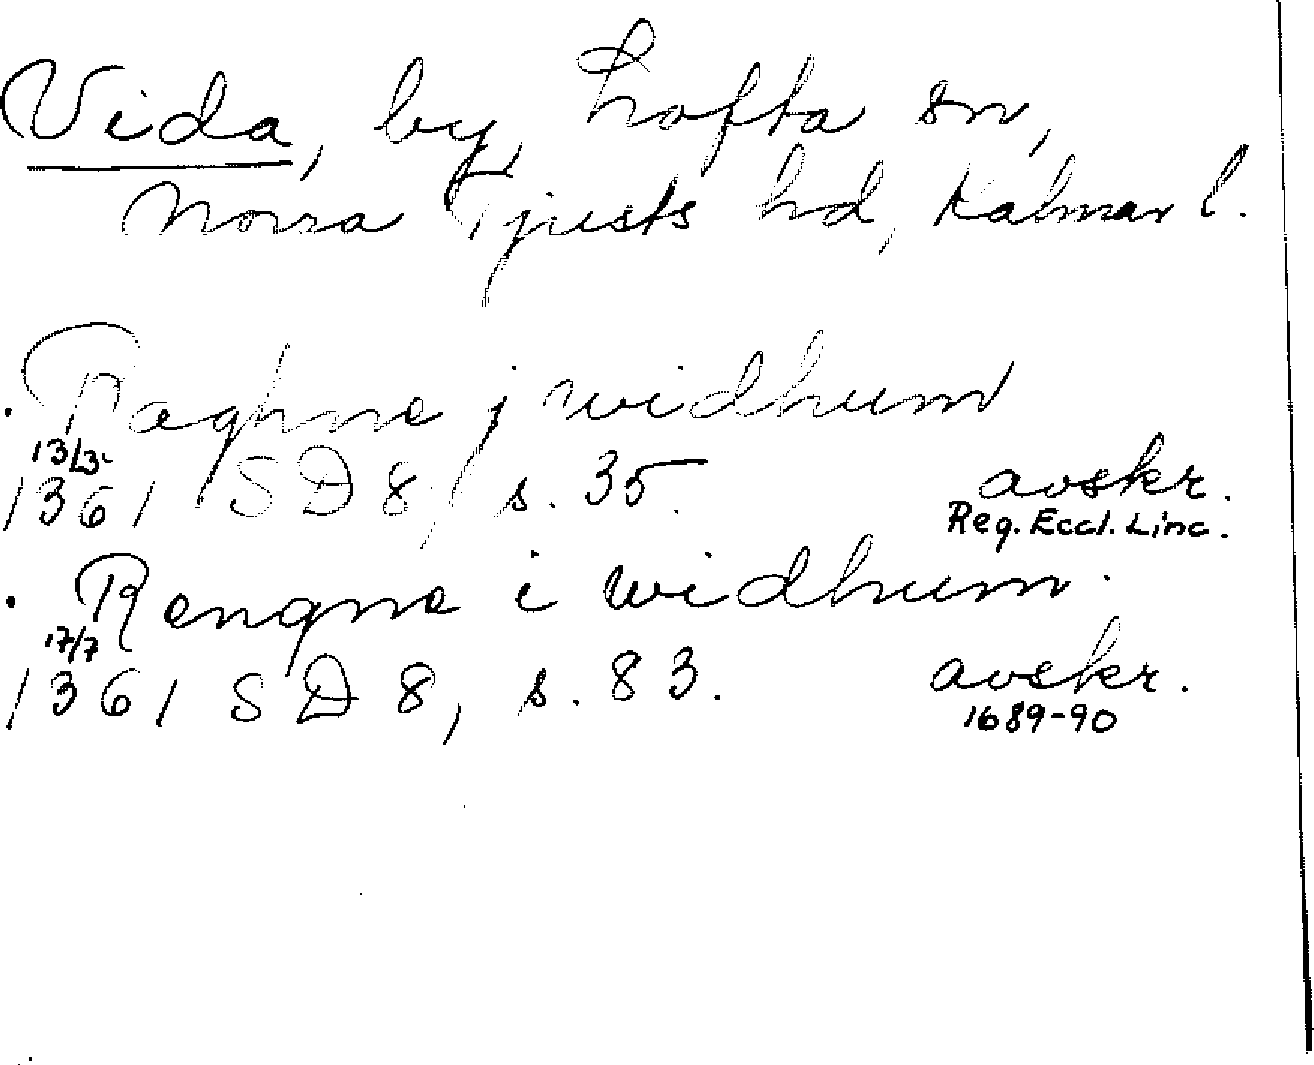 Vida, by, Lofta sn,
Norra Tjusts hd, Kalmar l.
Raghne j widhum
13/3
1361 SD 8, s. 35. avskr.
Reg. Eccl. Linc.
Rengne i widhum.
17/7
1361 SD 8, s. 83. avskr.
1689-90